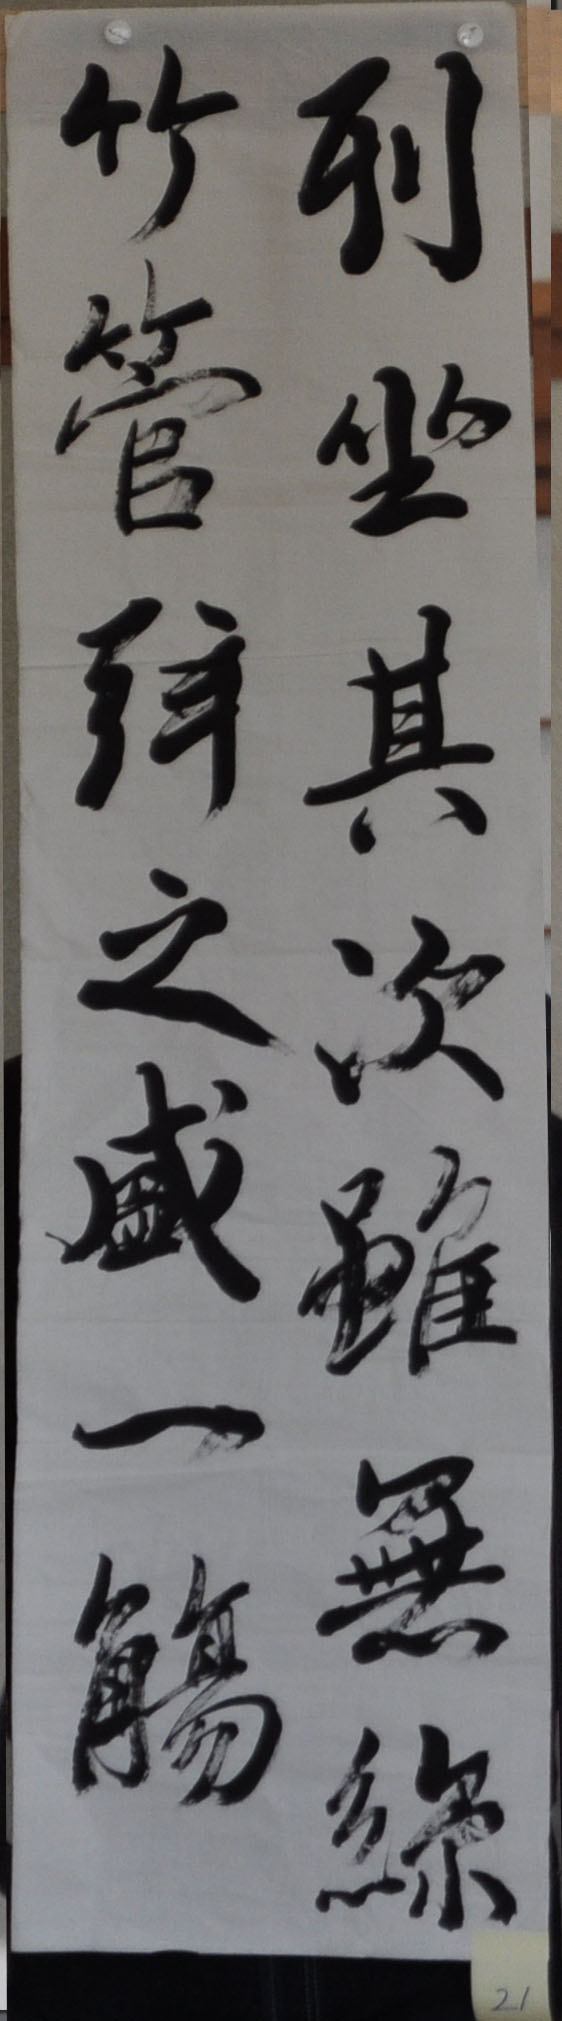 列坐其次雖無絲
竹管弦之盛一觴
21